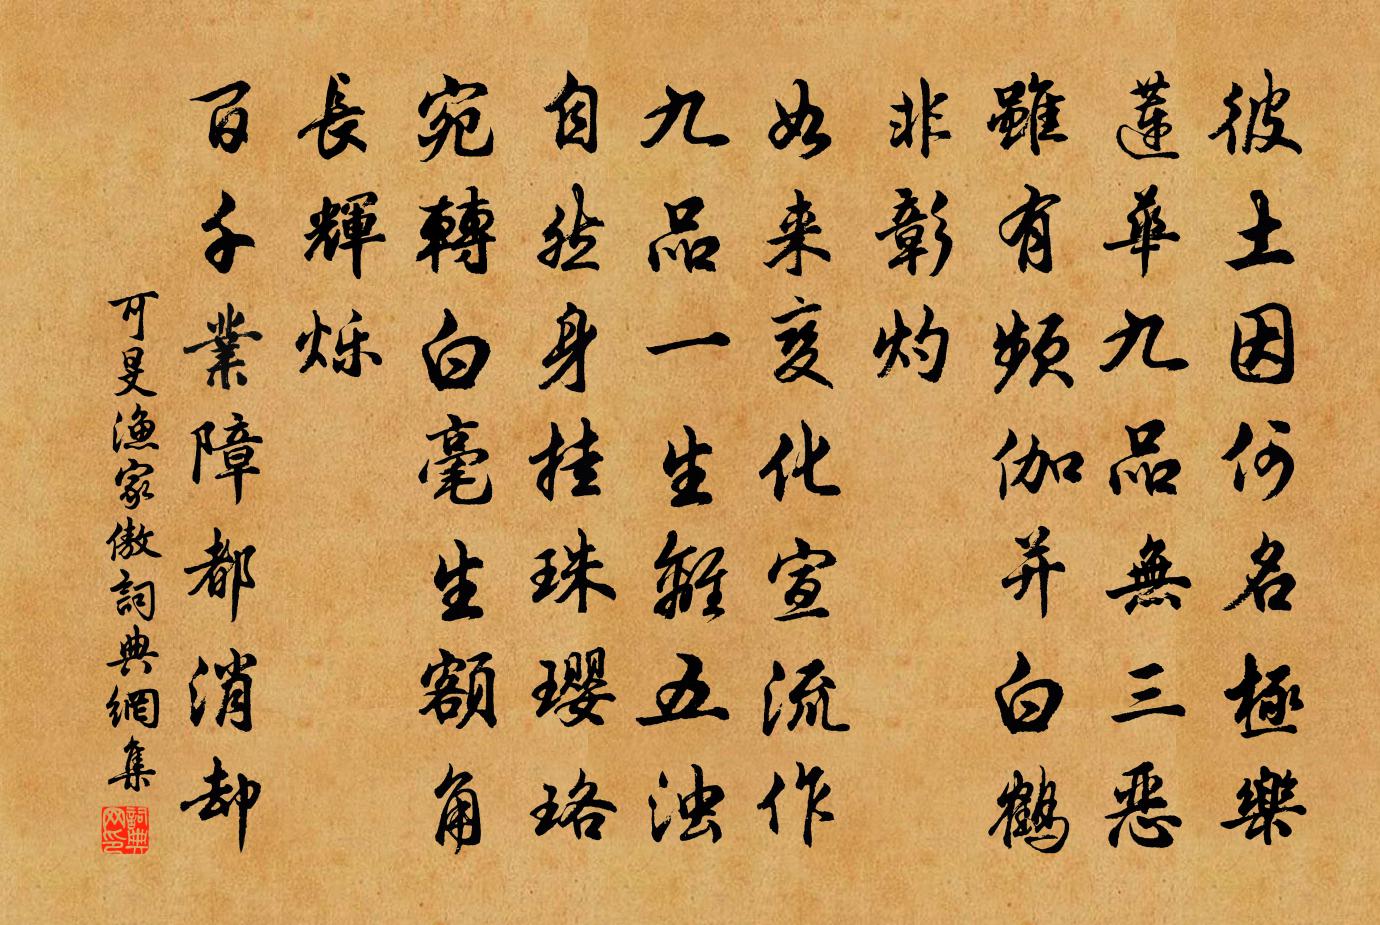 彼土因何名極樂
蓮華九品無三惡
雖有頻伽并白鶴
非彰灼
如来变化宣流作
九品一生離五浊
自然身挂珠璎珞
宛轉白毫生額角
長輝烁
百千業障都消却
可旻漁家傲詞典網集
詞典网印